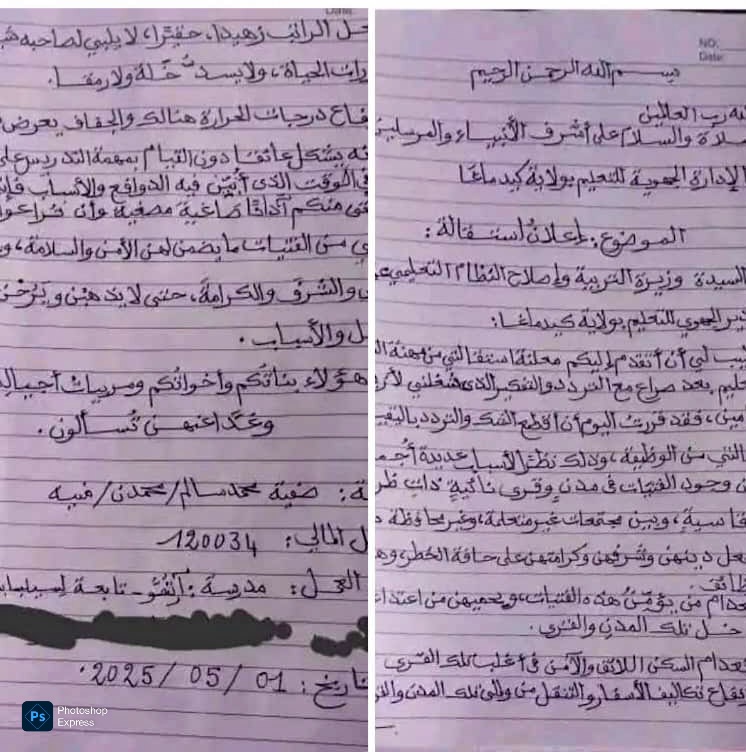 NO:
Date:
بسم الله الرحمن الرحيم
لله رب العالمين
صلاة والسلام على أشرف الأنبياء والمرسلين
الإدارة الجهوية للتعليم بولاية كيدماغا
الموضوع: إعلان استقالة:
السيدة وزيرة التربية وإصلاح النظام التعليمي
المدير الجهوي للتعليم بولاية كيدماغا:
يطيب لي أن أتقدم إليكم معلنة استقالتي من مهنة
تعليم بعد صراع مع التردد والتفكير الذي شغلني
عامين، فقد قررت اليوم أن أقطع الشك والتردد باليقين
من الوظيفة، وذلك نظرا لأسباب عديدة
وجود الفتيات في مدن وقرى نائية ذات
قاسية، وبين مجتمعات غير متعلمة، وغير محافظة
يجعل دينهن وشرفهن وكرامتهن على حافة الخطر
انعدام من يؤمن هذه الفتيات، ويحميهن من
داخل تلك المدن والقرى.
انعدام السكن اللائق والآمن في أغلب تلك القرى
ارتفاع تكاليف الأسفار والتنقل من وإلى تلك المدن
Date:
الراتب زهيدا، حقيرا، لا يلبي لصاحبه
ضرورات الحياة، ولا يسد خلة ولا رمقا.
ارتفاع درجات الحرارة هنالك والجفاف
يشكل عائقا دون القيام بمهمة التدريس
في الوقت الذي أبين فيه الدوافع والأسباب
منكم آذانا صاغية مصغية وأن تراعوا
من الفتيات ما يضمن لهن الأمن والسلامة،
والشرف والكرامة، حتى لا يذهبن
والأسباب.
هؤلاء بناتكم وأخواتكم ومربيات
وغدا عنهن تسألون.
صفية محمدسالم/محمدن/فيه
المالي: 120034
العمل: مدرسة: تابعة
تاريخ: 01/05/2025.
Ps Photoshop
Express